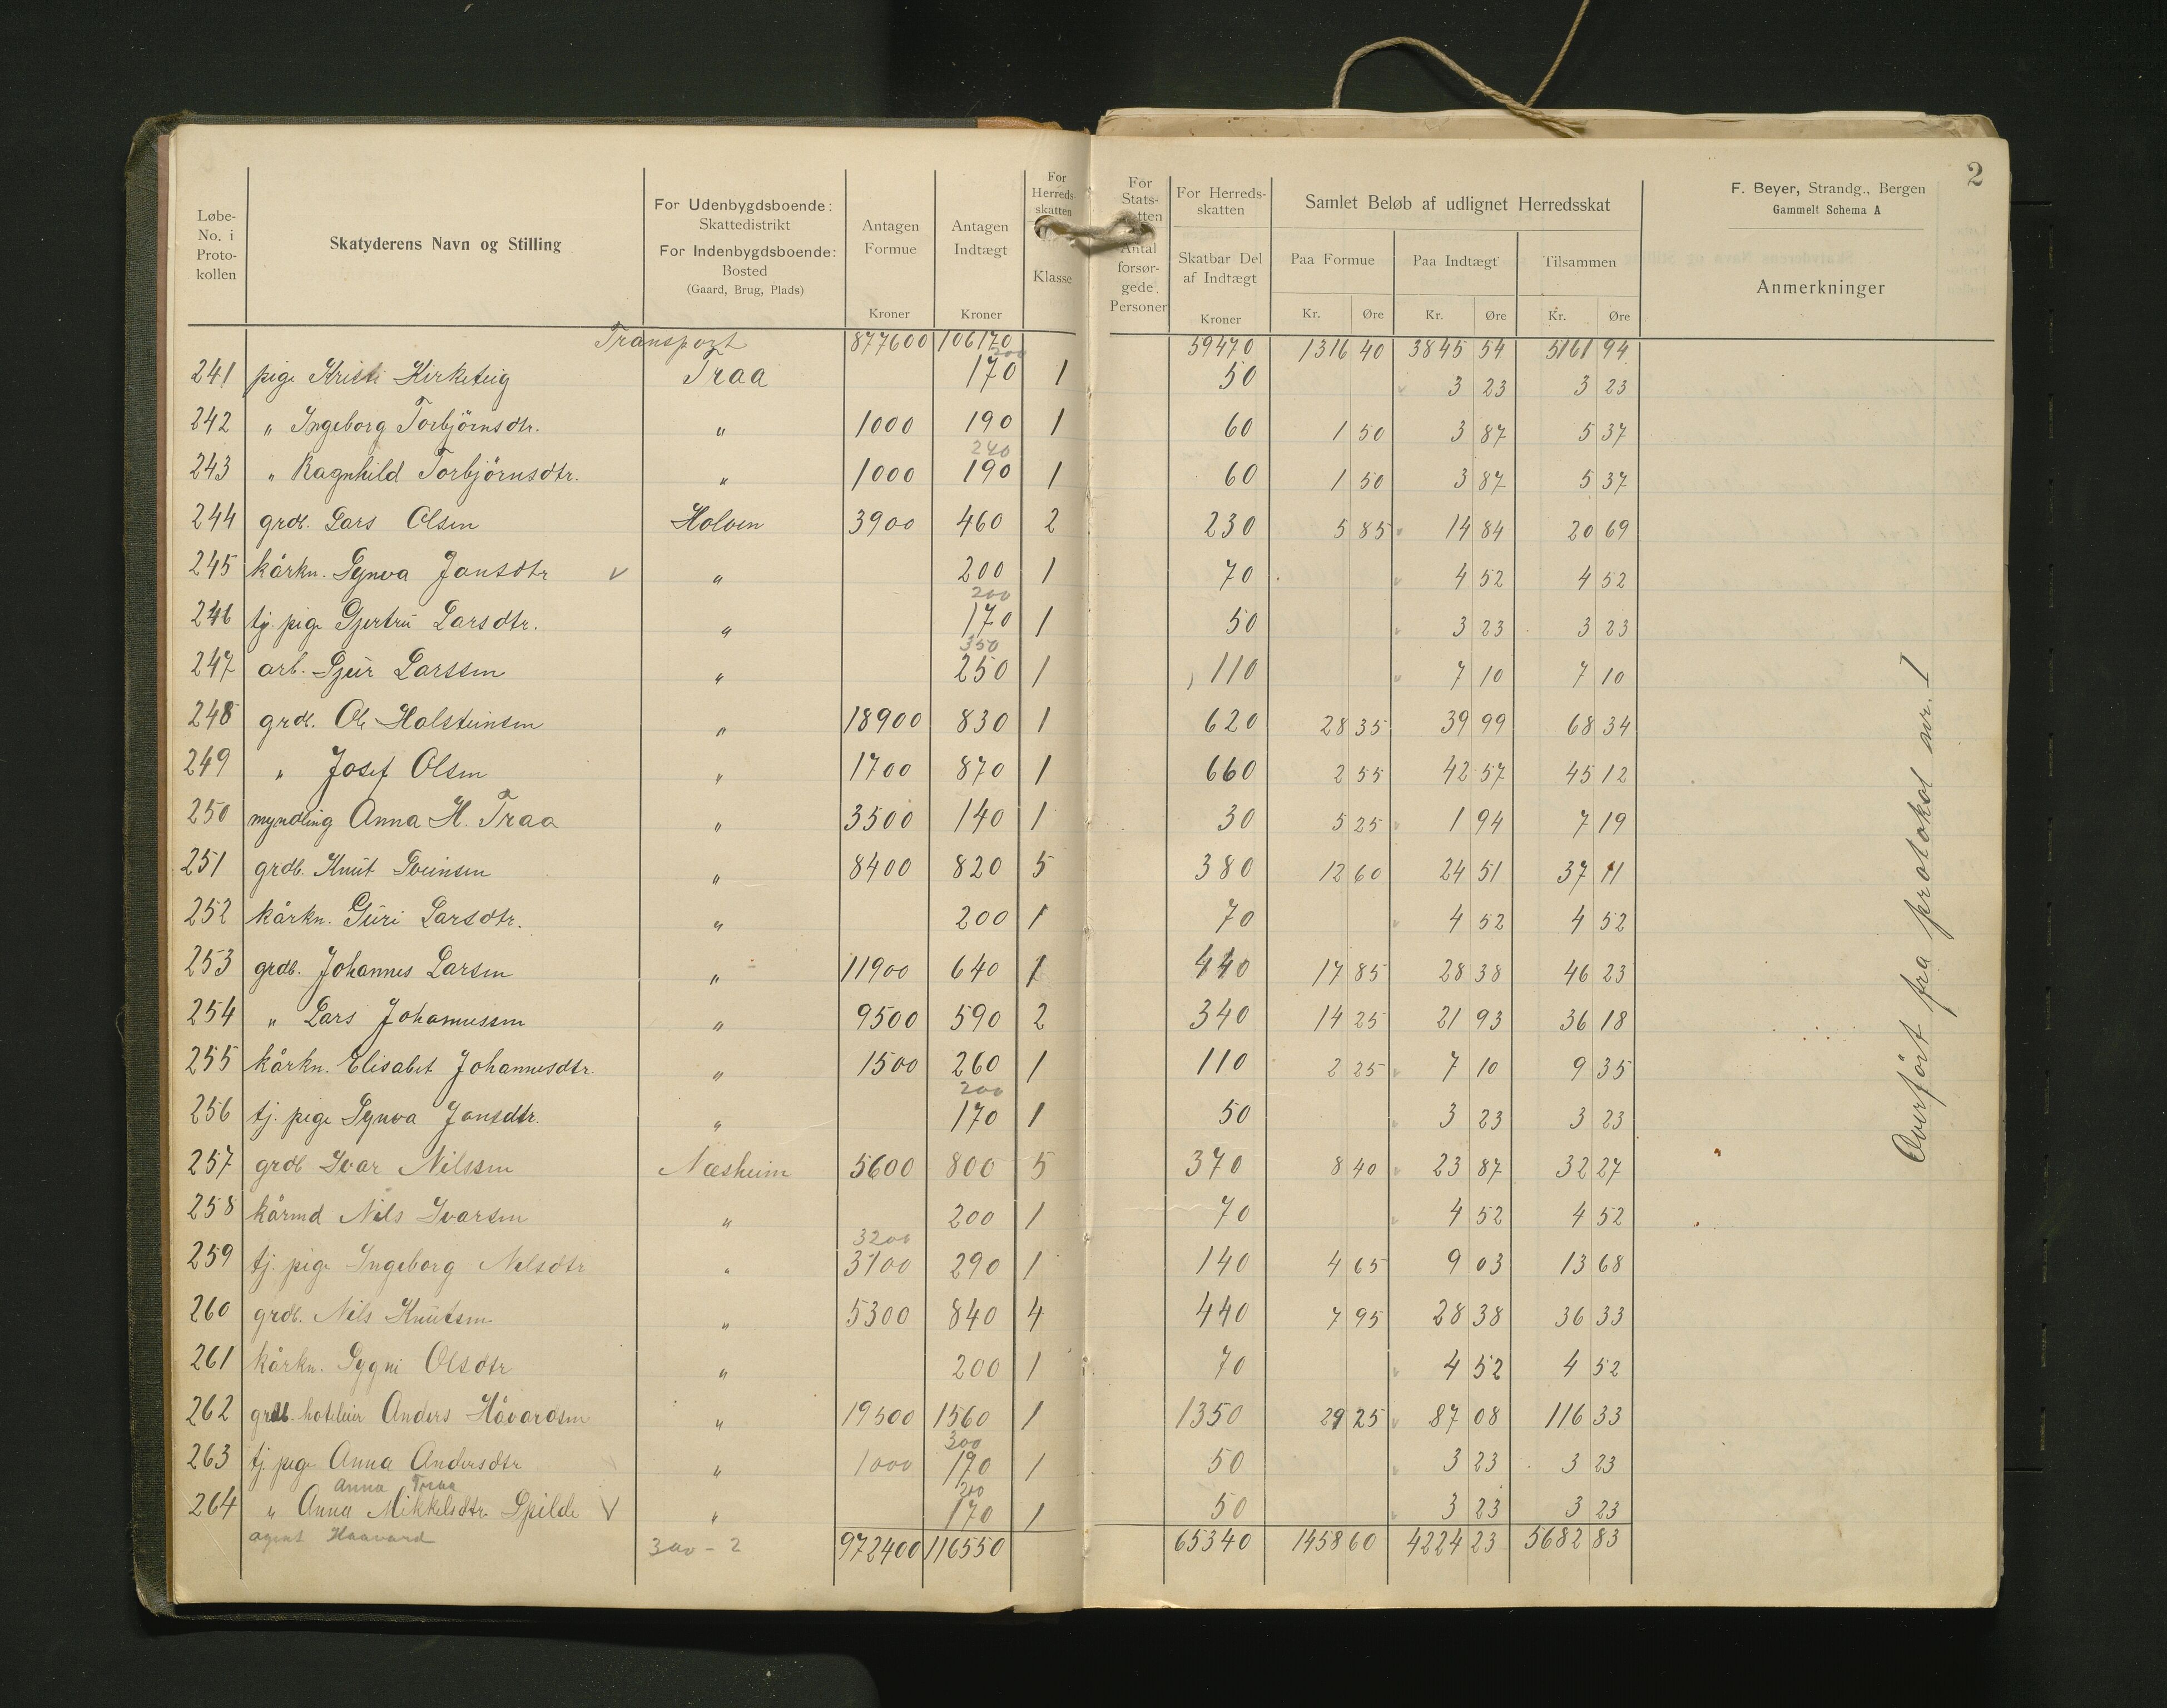 2
Løbe-No. i Proto-kollen
Skatyderens Navn og Stilling
For Udenbygdsboende: Skattedistrikt
For Indenbygdsboende: Bosted (Gaard, Brug, Plads)
Antagen Formue Kroner
Antagen Indtægt Kroner
For Herreds-skatten Klasse
For Stats- tten Antal forsør-gede Personer
For Herreds-skatten Skatbar Del af Indtægt Kroner
Samlet Beløb af udlignet Herredsskat
Paa Formue Kr. Øre
Paa Indtægt Kr. Øre
Tilsammen Kr. Øre
F. Beyer, Strandg., Bergen
Gammelt Schema A
Anmerkninger
Transport 877600 106170 59470 1316 40 3845 54 5161 94
200
241 pige Kristi Kirketeig Traa 170 1 50 3 23 3 23
242 " Ingeborg Torbjörnsdtr. " 1000 190 1 60 1 50 3 87 5 37
240
243 " Ragnhild Torbjörnsdtr. " 1000 190 1 60 1 50 3 87 5 37
244 grdb. Lars Olsen Holven 3900 460 2 230 5 85 14 84 20 69
245 kårkn. Synva Jonsdtr V " 200 1 70 4 52 4 52
200
246 tj. pige Gjertru Larsdtr. " 170 1 50 3 23 3 23
350
247 arb. Sjur Larssen " 250 1 110 7 10 7 10
248 grdb. Ole Holsteinsen " 18900 830 1 620 28 35 39 99 68 34
249 " Josef Olsen " 1700 870 1 660 2 55 42 57 45 12
250 myndling Anna H. Traa " 3500 140 1 30 5 25 1 94 7 19
251 grdb. Knut Sveinsen " 8400 820 5 380 12 60 24 51 37 11
252 kårkn. Guri Larsdtr. " 200 1 70 4 52 4 52
253 grdb. Johannes Larsen " 11900 640 1 440 17 85 28 38 46 23
254 " Lars Johannessen " 9500 590 2 340 14 25 21 93 36 18
255 kårkn. Elisabet Johannesdtr. " 1500 260 1 110 2 25 7 10 9 35
200
256 tj. pige Synva Jonsdtr. " 170 1 50 3 23 3 23
257 grdb Ivar Nilssen Næsheim 5600 800 5 370 8 40 23 87 32 27
258 kårmd Nils Ivarsen " 200 1 70 4 52 4 52
3200
259 tj. pige Ingeborg Nilsdtr " 3100 290 1 140 4 65 9 03 13 68
260 grdb. Nils Knutsen " 5300 840 4 440 7 95 28 38 36 33
261 kårkn. Sygni Olsdtr " 200 1 70 4 52 4 52
262 grdb. hoteleier Anders Håvardsen " 19500 1560 1 1350 29 25 87 08 116 33
300
263 tj. pige Anna Andersdtr " 1000 170 1 50 3 23 3 23
Anna Traa 200
264 " Anna Mikkelsdtr. Spilde V " 170 1 50 3 23 3 23
agent Haavard 300 - 2
972400 116550 65340 1458 60 4224 23 5682 83
Overfört fra protokol nr. I